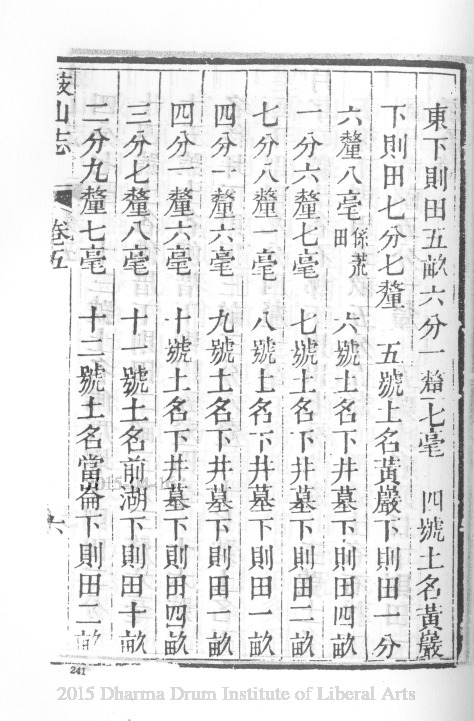 東下則田五畝六分一釐七毫　四號土名黃巖
下則田七分七釐　五號土名黃巖下則田一分
六釐八毫係荒田　六號土名下井墓下則田四畝
一分六釐七毫　七號土名下井墓下則田二畝
七分八釐一毫　八號土名下井墓下則田一畝
四分一釐六毫　九號土名下井墓下則田畝
四分一釐六毫　十號土名下井墓下則田四畝
三分七釐八毫　十一號土名前湖下則田十畝
二分九釐七毫　十二號土名當崙下則田二畝
鼓山志　卷五　六
241
2015 Dharma Drum Institute of Liberal Arts